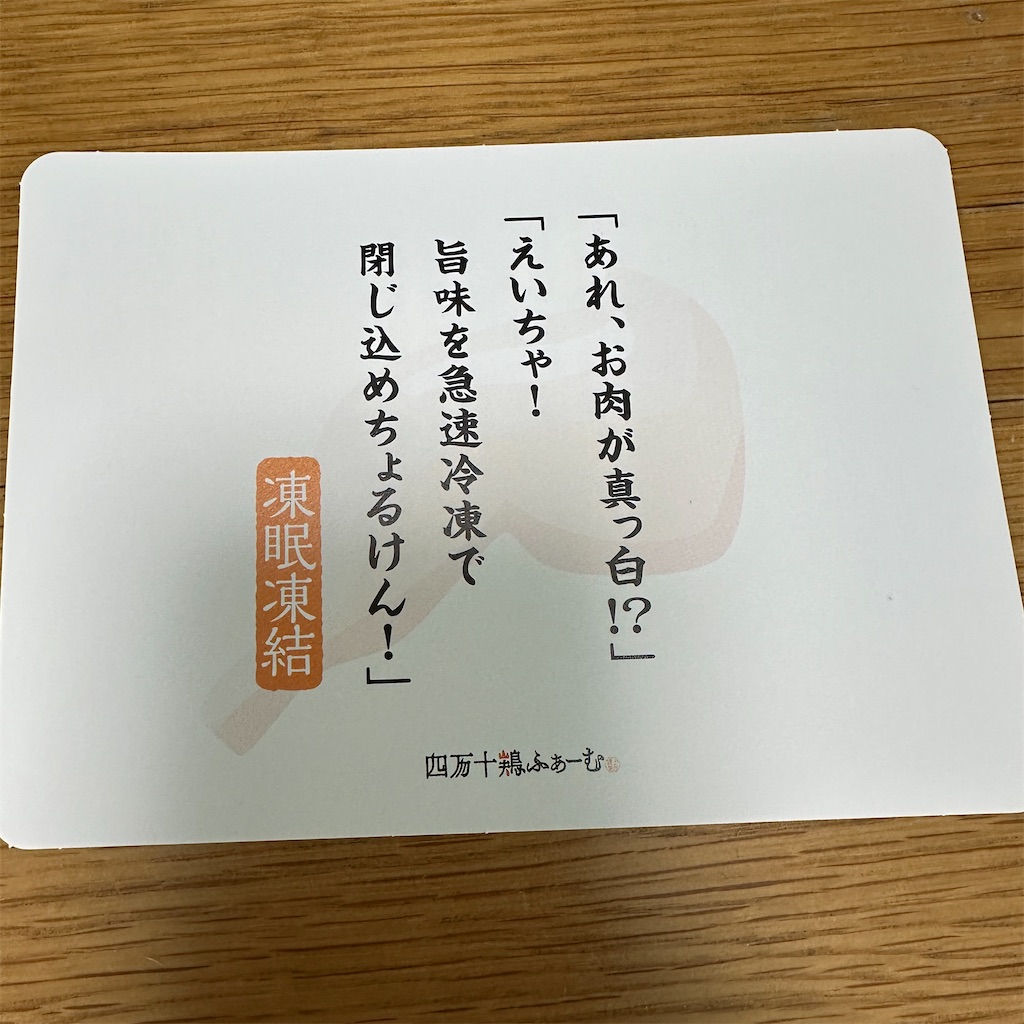 「あれ、お肉が真っ白!?」
「えいちゃ！
旨味を急速冷凍で
閉じ込めちょるけん！」
凍眠凍結
四万十鶏ふぁーむ